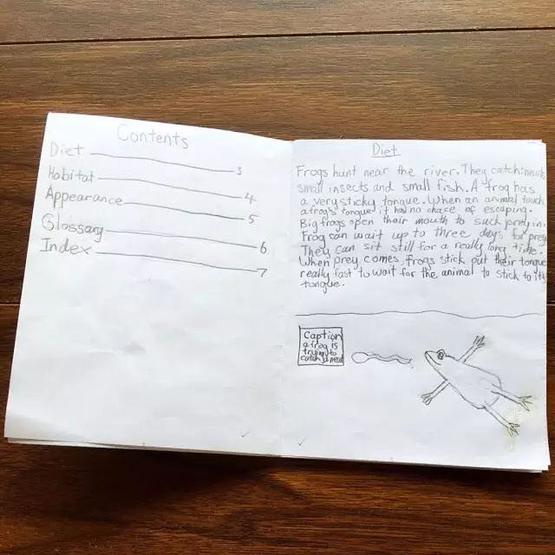 Contents
Diet 3
Habitat 4
Appearance 5
Glossary 6
Index 7
Diet
Frogs hunt near the river. They catch
small insects and small fish. A frog has
a very sticky tongue. When an animal touch
a frogs tongue it had no chace of escaping.
Big frogs open thair mouth to suck prey in.
Frog can wait up to three days for prey
They can sit still for a really long time.
When prey comes, frogs stick out their tongue
really fast to wait for the animal to stick to it
tongue.
Caption
a frog is
trying to
catch